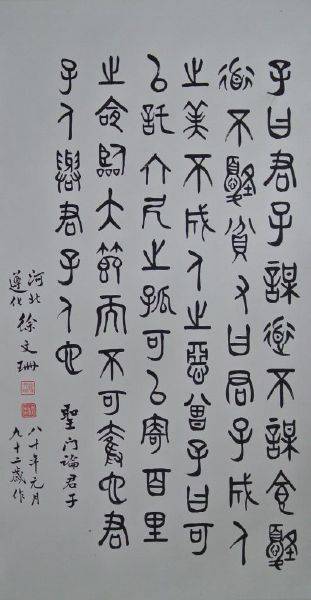 子曰君子謀道不謀食憂
道不憂貧又曰君子成人
之美不成人之惡曾子曰可
以託六尺之孤可以寄百里
之命臨大節而不可奪也君
子人與君子人也
聖門論君子
河北
遵化
徐文珊
八十年元月
九十二歲作